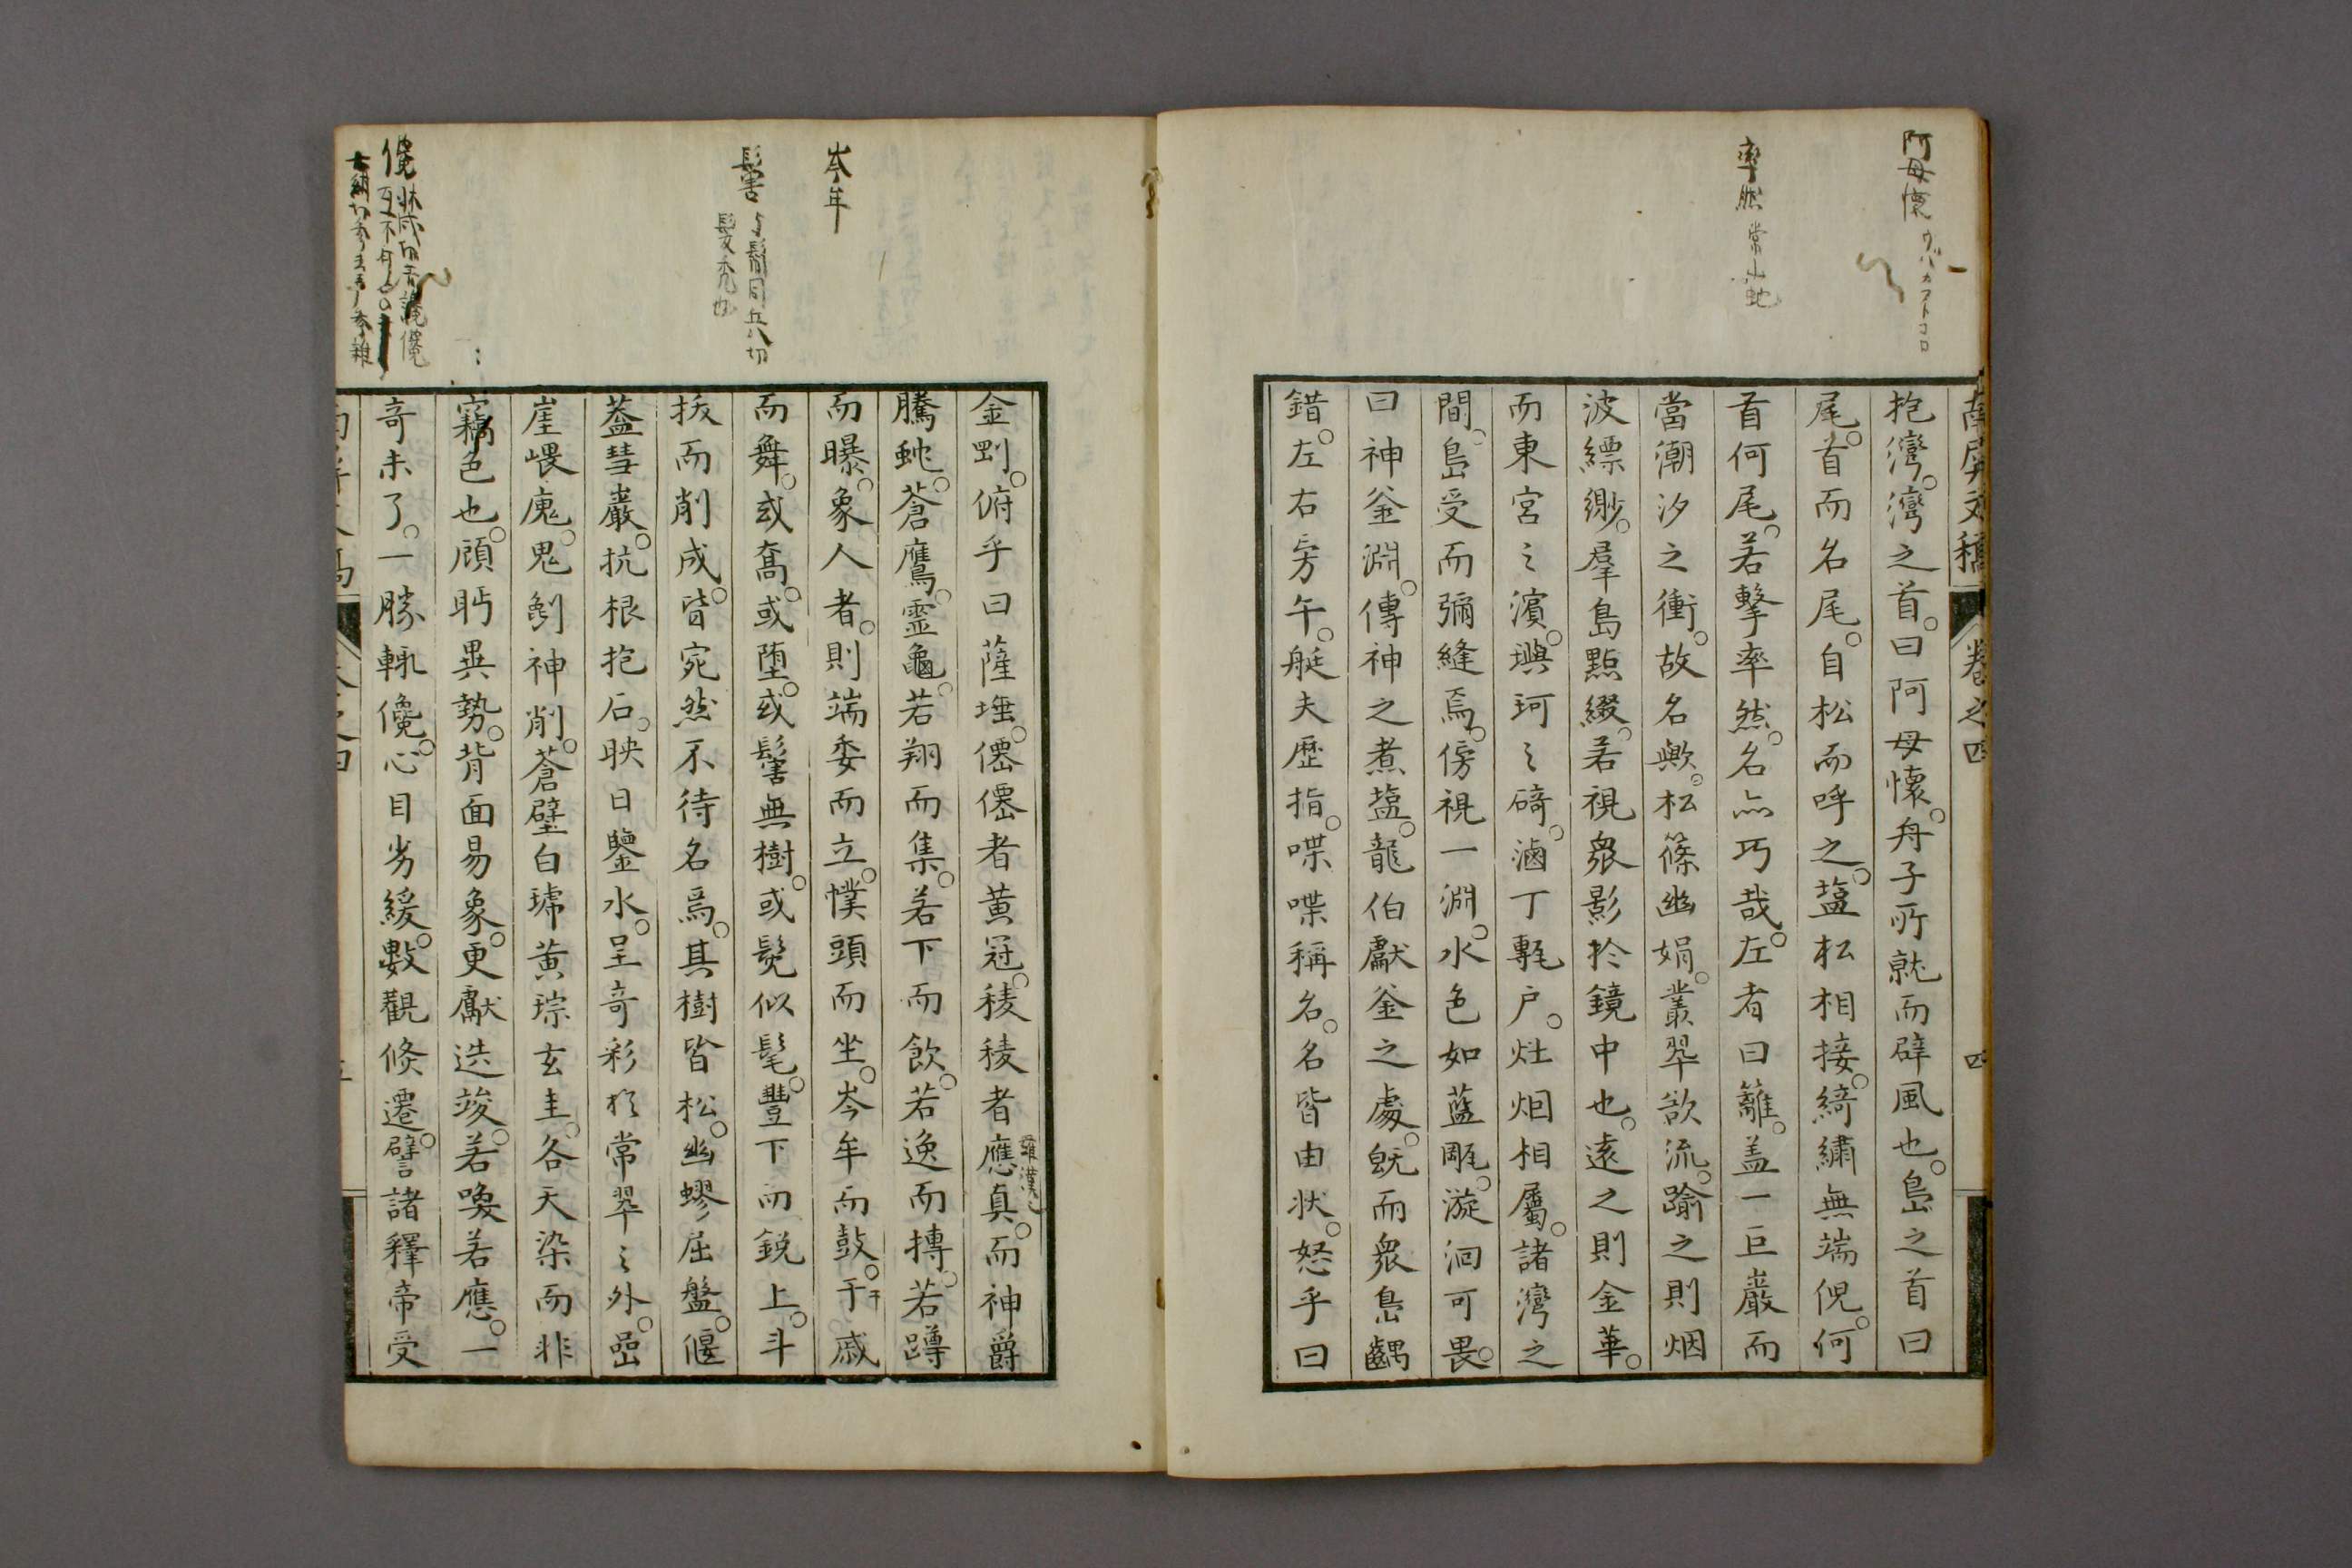 阿母懐 ウバガフトコロ
率然 常山蛇
南屏文稿 卷之四 四
抱灣。灣之首。曰阿母懷。舟子所就而辟風也。島之首曰
尾。首而名尾。自松而呼之。盐松相接。綺繡無端倪。何
首何尾。若擊率然。名亦巧哉。左者曰籬。盖一巨巖而
當潮汐之衝。故名歟。松篠幽娟。叢翠欲流。踰之則烟
波縹緲。羣島點綴。若視衆影於鏡中也。遠之則金華。
而東宮之濱。璵珂之碕。滷丁甎户。灶烟相屬。諸灣之
間。島受而彌縫焉。傍視一淵。水色如藍。彫漩洄可畏。
曰神釜淵。傳神之煮盐。龍伯獻釜之處。既而衆島齵
錯。左右旁午。艇夫歷指。喋喋稱名。名皆由狀。怒乎曰
岑牟
鬜 与鬝同丘八切
髮禿也
金剛。俯乎曰薩埵。僊僊者黃冠。稜稜者應真。而神爵
羅漢
騰蛇。蒼鷹。靈龜。若翔而集。若下而飲。若逸而摶。若蹲
而曝。象人者。則端委而立。幞頭而坐。岑牟而鼓。于戚
干
而舞。或奮。或墮。或鬜無樹。或髡似髦。豐下而銳上。斗
拔而削成。皆宛然不待名焉。其樹皆松。幽蟉屈盤。偃
葢彗巖。抗根抱石。映日鑒水。呈奇彩於常翠之外。嵒
崖崼廆。鬼剜神削。蒼璧白琥黃琮玄圭。各天染而非
竊色也。頋眄異勢。背面易象。更獻迭竣。若喚若應。一
奇未了。一勝輒儳。心目劣緩。數觀倏遷。譬諸釋帝受